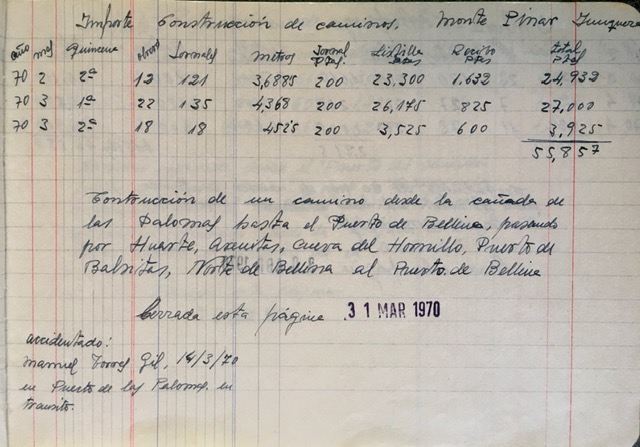 Importe Construcción de caminos. Monte Pinar Yunquera
año mes Quincena obreros Jornales Metros Jornal Ptas. Listilla Ptas Recibo Pts Total Ptas
70 2 2ª 12 121 3,6885 200 23,300 1.632 24,932
70 3 1ª 22 135 4,368 200 26,175 825 27,000
70 3 2ª 18 18 4525 200 3,525 600 3,925
55,857
Construcción de un camino desde la cañada de
las Palomas hasta el Puerto de Bellina, pasando
por Huarte, Cueva del Hornillo, Puerto de
Balsitas, Norte de al Puerto de Bellina
Cerrada esta página 31 MAR 1970
accidentado:
Manuel Torres Gil, 14/3/70
en Puerto de las Palomas. en
transito.